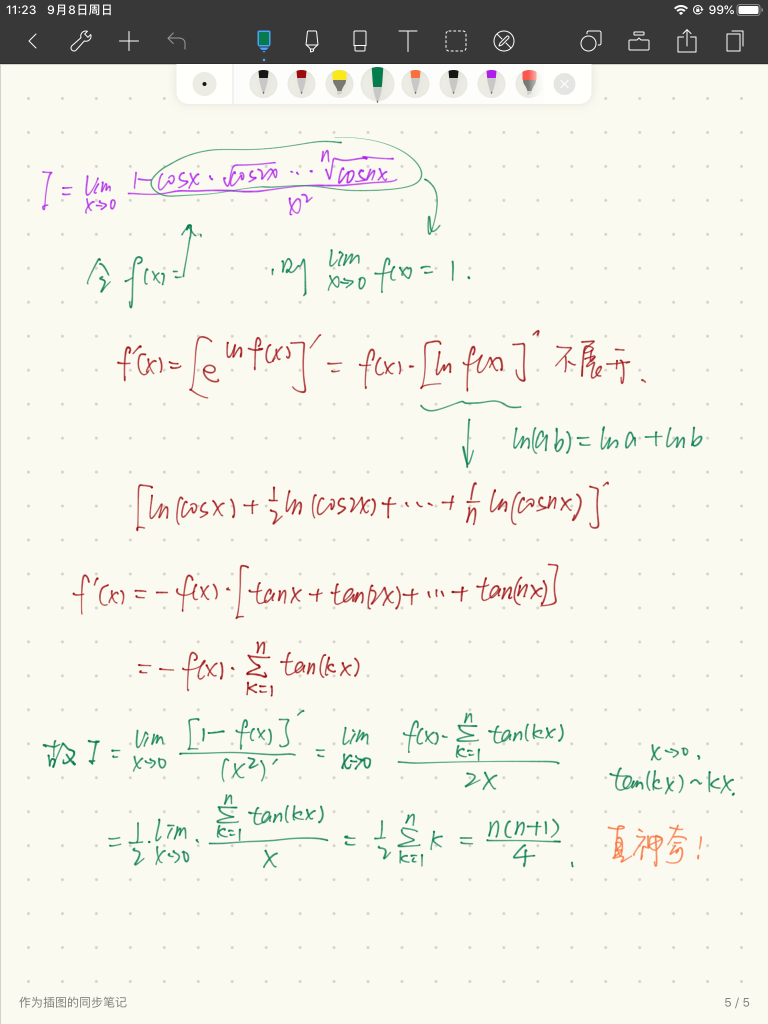 11:23 9月8日周日 99%
I = lim x→0 (1-cosx·√cos2x ··· ⁿ√cosnx) / x²
令 f(x)= ,则 lim x→0 f(x) = 1.
f'(x) = [e^(ln f(x))]' = f(x)·[ln f(x)]' 不展开.
ln(ab) = ln a + ln b
[ln(cosx) + 1/2 ln(cos2x) + ··· + 1/n ln(cosnx)]'
f'(x) = - f(x)·[tanx + tan(2x) + ··· + tan(nx)]
= - f(x)· ∑(k=1→n) tan(kx)
故 I = lim x→0 [1-f(x)]' / (x²)' = lim x→0 f(x)·∑(k=1→n) tan(kx) / 2x
x→0,
tan(kx) ~ kx.
= 1/2 · lim x→0 · ∑(k=1→n) tan(kx) / x = 1/2 ∑(k=1→n) k = n(n+1) / 4 .
真神奇!
作为插图的同步笔记 5 / 5